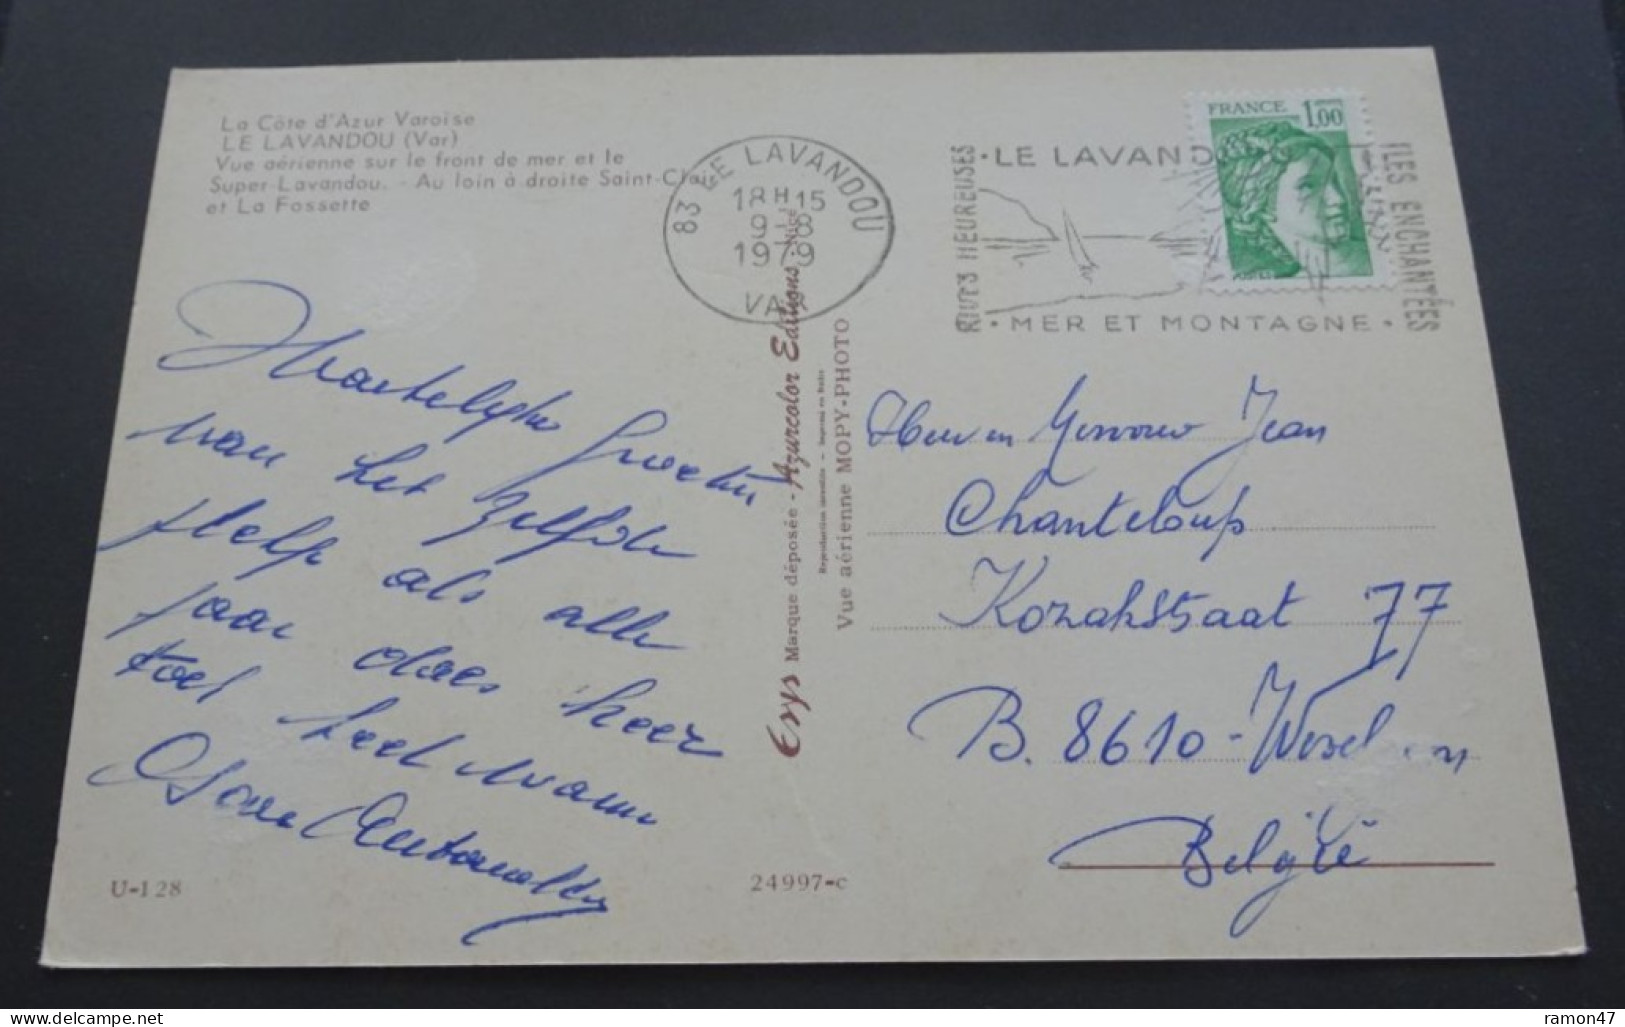 La Côte d'Azur Varoise
LE LAVANDOU (Var)
Vue aérienne sur le front de mer et le
Super-Lavandou. - Au loin à droite Saint-Clair
et La Fossette
83 LE LAVANDOU
18H15
9-8
1979
VAR
RIVES HEUREUSES
• LE LAVANDOU
• MER ET MONTAGNE •
ILES ENCHANTÉES
FRANCE 1,00
Hartelyke Groeten
van het zelfde
stelp als alle
jaar daes heer
toel heel warm
Erys Marque déposée - Azurcolor Editions - Nice
Vue aérienne MOPY-PHOTO
Heer en Mevrouw Jean
Chanteloup
Kozakstraat 77
B. 8610 - Wesel
België
U-128
24997-c
ramon47